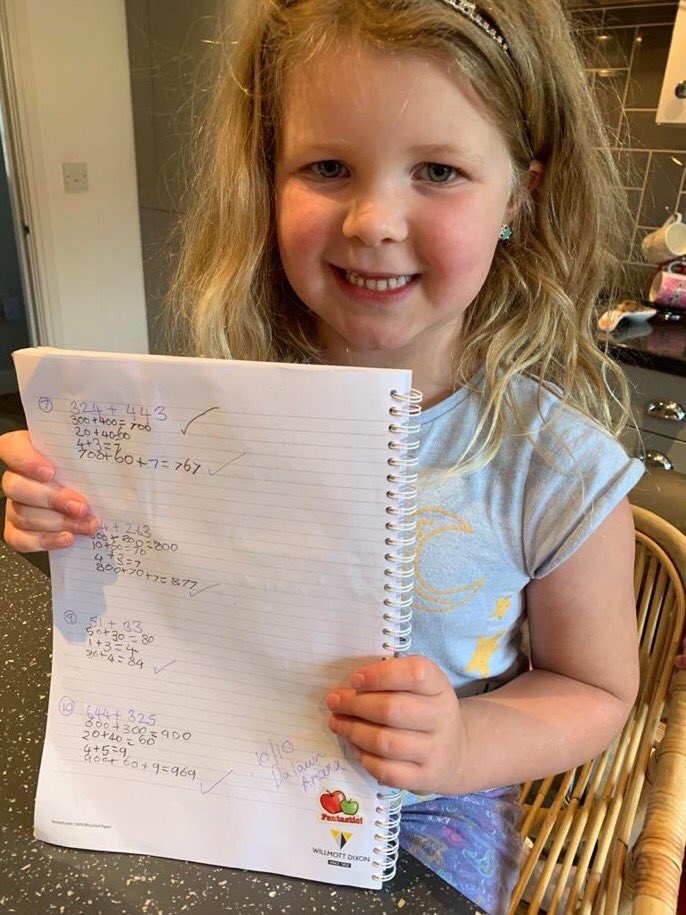 7 324 + 443
300+400=700
20+4060
4+3=7
700+60+7=767
600+200=800
10+60=70
4+3=7
800+70+7=877
9 51 + 33
50+30=80
1+3=4
80+4=84
10 644 + 325
600+300=900
20+40=60
4+5=9
900+60+9=969
10/10
Da iawn
Fantastic!
WILLMOTT DIXON
SINCE 1852
100% Recycled Paper